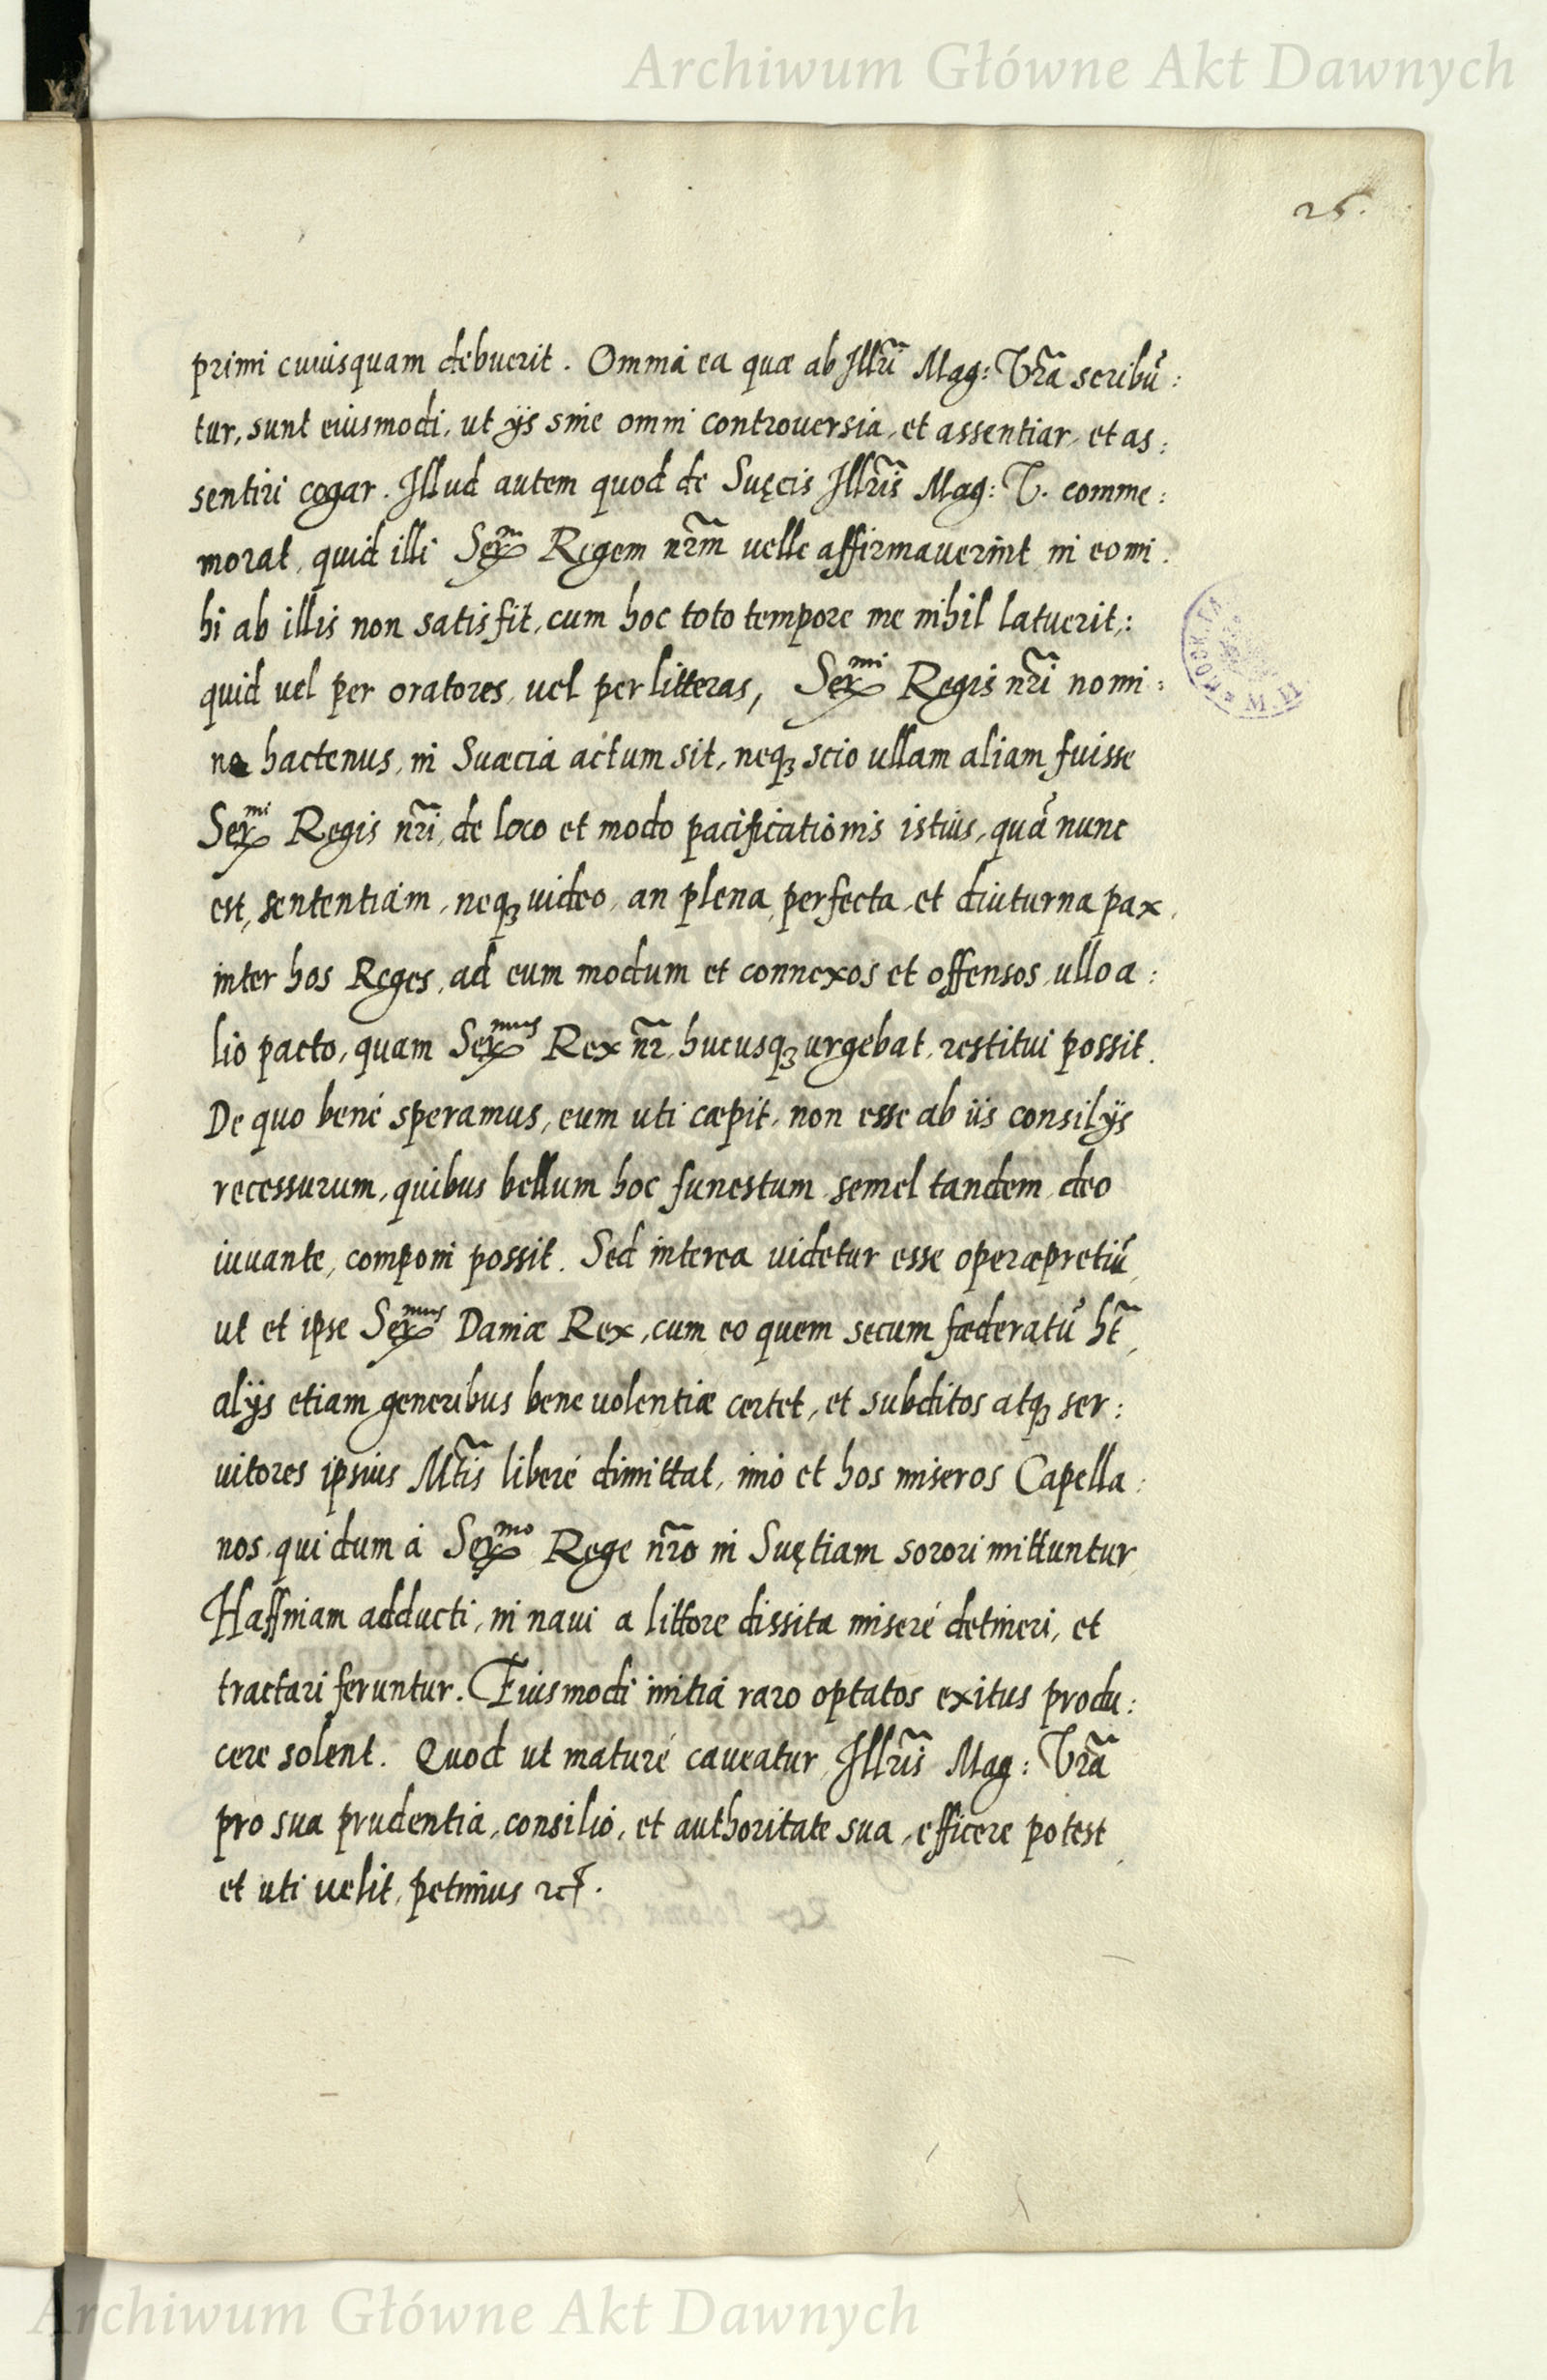 Archiwum Główne Akt Dawnych
25.
primi cuiusquam debuerit. Omnia ea quæ ab Illrĩ Mag: Vrã scribũ:
tur, sunt eiusmodi, ut ijs sine omni controuersia, et assentiar, et as:
sentiri cogar. Illud autem quod de Suęcis Illrĩs Mag: V. comme:
morat, quid illi Ser^m Regem nr̃m uelle affirmauerint, in eo mi:
hi ab illis non satisfit, cum hoc toto tempore me nihil latuerit,:
quid uel per oratores, uel per litteras, Ser^mi Regis nrĩ nomi:
ne hactenus, in Suæcia actum sit, neq₃ scio ullam aliam fuisse
Ser^mi Regis nrĩ, de loco et modo pacificationis istius, quã nunc
est, sententiam, neq₃ uideo, an plena, perfecta, et diuturna pax,
inter hos Reges, ad eum modum et connexos et offensos, ullo a:
lio pacto, quam Ser^mus Rex nr̃, hucusq₃ urgebat, restitui possit.
De quo bené speramus, eum uti cæpit, non esse ab iis consilijs
recessurum, quibus bellum hoc funestum, semel tandem, deo
iuuante, componi possit. Sed interea uidetur esse operæpretiũ,
ut et ipse Ser^mus Daniæ Rex, cum eo quem secum fæderatũ ht̃,
alijs etiam generibus beneuolentiæ certet, et subditos atq₃ ser:
uitores ipsius Mtĩs liberé dimittat, imò et hos miseros Capella:
nos, qui dum à Ser^mo Rege nrõ in Suętiam sorori mittuntur,
Haffniam adducti, in naui a littore dissita miseré detineri, et
tractari feruntur. Eiusmodi initia raro optatos exitus produ:
cere solent. Quod ut maturé caueatur, Illrĩs Mag: Vrã
pro sua prudentia, consilio, et authoritate sua, efficere potest,
et uti uelit, petimus etc.
Archiwum Główne Akt Dawnych